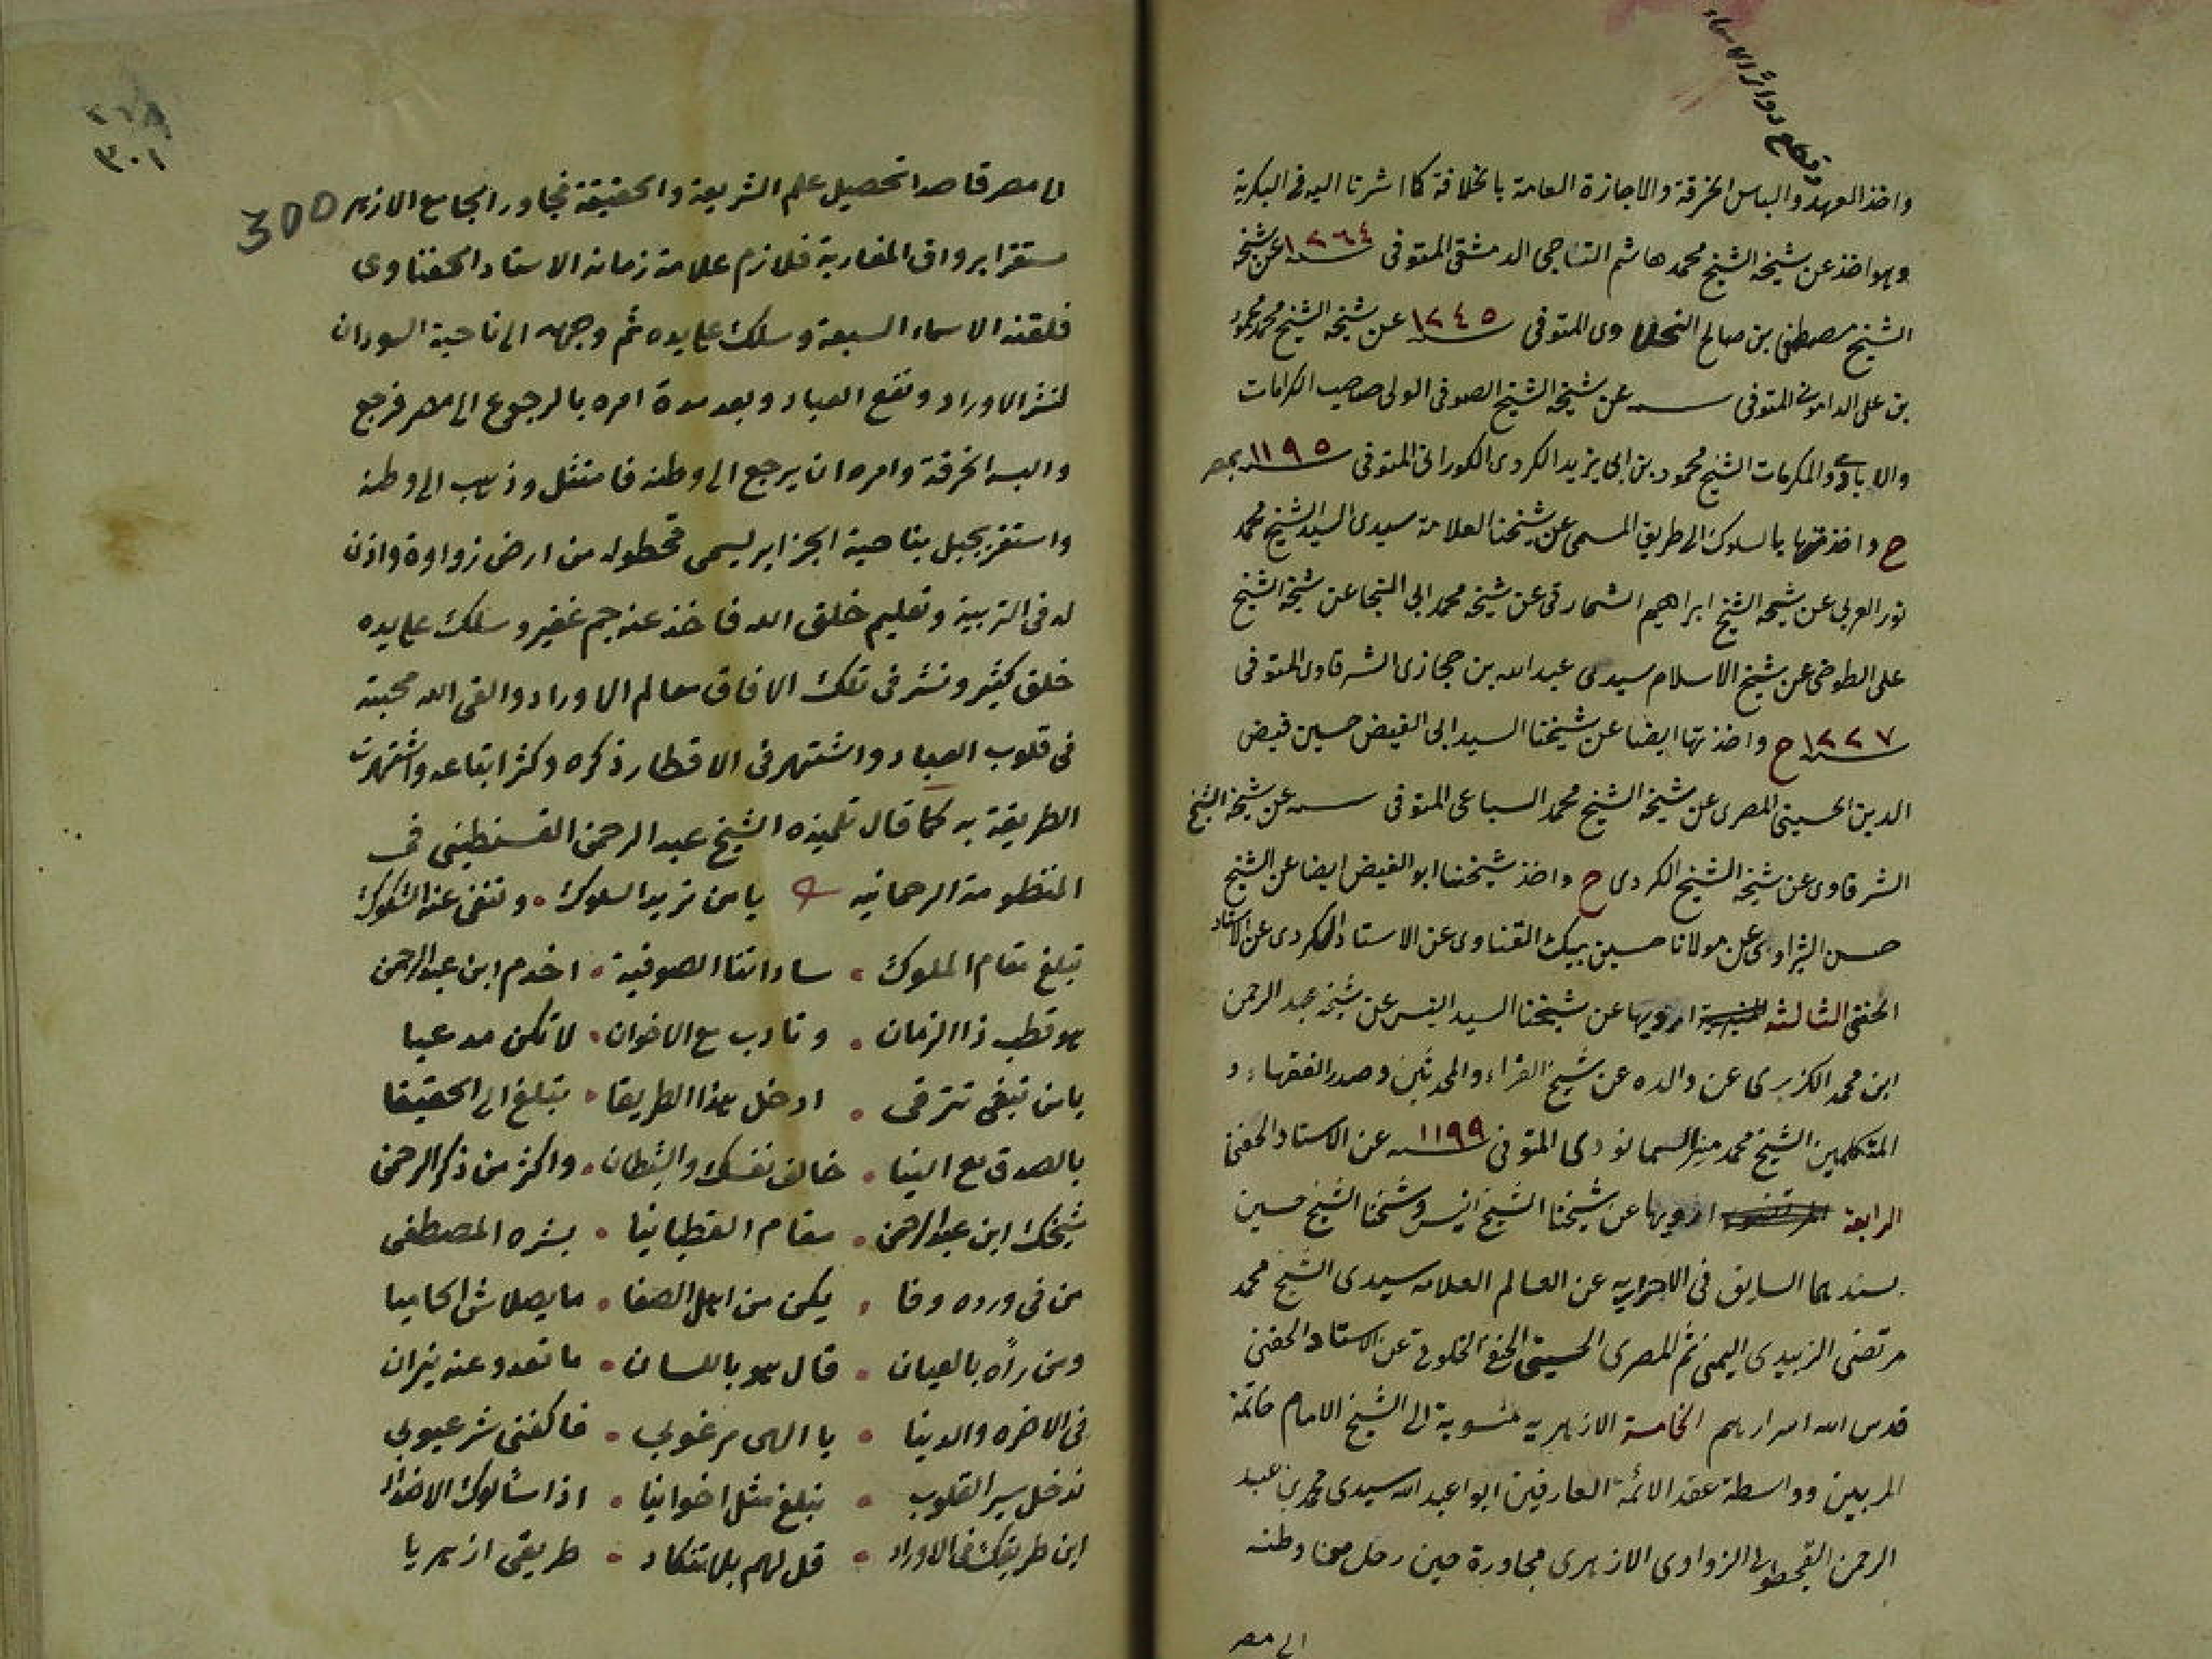 وقطع دوائر الاسماء
واخذ العهد والباس الخرقة والاجازة العامة بالخلافة كما اشرنا اليه فى البكرية
وهو اخذ عن شيخه الشيخ محمد هاشم التاجى الدمشقى المتوفى سنة ١٢٦٤ عن شيخه
الشيخ مصطفى بن صالح النحلاوى المتوفى سنة ١٢٤٥ عن شيخه الشيخ محمد محمود
بن على الداموني المتوفى سنة عن شيخه الشيخ الصوفى الولى صاحب الكرامات
والايادي والمكرمات الشيخ محمود بن ابى يزيد الكردى الكورانى المتوفى سنة ١١٩٥ بمصر
ح واخذتها بالسلوك الى طريق المسمى عن شيخنا العلامة سيدى السيد الشيخ محمد
نور العربى عن شيخه الشيخ ابراهيم الشمارقى عن شيخه محمد ابى النجا عن شيخه الشيخ
على الطوخى عن شيخ الاسلام سيدى عبد الله بن حجازى الشرقاوى المتوفى
سنة ١٢٢٧ ح واخذتها ايضا عن شيخنا السيد ابى الفيض حسين فيض
الدين الحسينى المصرى عن شيخه الشيخ محمد السباعى المتوفى سنة عن شيخه الشيخ
الشرقاوى عن شيخه الشيخ الكردى ح واخذ شيخنا ابو الفيض ايضا عن الشيخ
حسن الشراوى عن مولانا حسين بيك القناوى عن الاستاد الكردى عن الاستاد
الحفنى الثالثة ارويها عن شيخنا السيد انيس عن شيخه عبد الرحمن
ابن محمد الكزبرى عن والده عن شيخ القراء والمحدثين وصدر الفقهاء و
المتكلمين الشيخ محمد منير السمانودى المتوفى سنة ١١٩٩ عن الاستاد الحفنى
الرابعة ارويها عن شيخنا الشيخ انيس وشيخنا الشيخ حسين
بسندهما السابق فى الاحرارية عن العالم العلامه سيدى الشيخ محمد
مرتضى الزبيدى اليمنى ثم المصرى الحسينى الحنفى الخلوتى عن الاستاد الحفنى
قدس الله اسرارهم الخامسة الازهريه منسوبة الى الشيخ الامام خاتمة
المربيين وواسطة عقد الائمة العارفين ابو اعبد الله سيدى محمد بن عبد
الرحمن القجطولى الزواوى الازهرى مجاورة حين رحل من وطنه
الى مصر
٣٠١
300
الى مصر قاصدا تحصيل علم الشريعة والحقيقة فجاور الجامع الازهر
مستقرا برواق المغاربة فلازم علامة زمانه الاستاد الحفناوى
فلقنه الاسماء السبعة وسلك على يده ثم وجهه الى ناحية السودان
لنشر الاوراد ونفع العباد وبعد مدة امره بالرجوع الى مصر فرجع
والبسه الخرقة وامره ان يرجع الى وطنه فامتثل وذهب الى وطنه
واستقر بجبل بناحية الجزاير يسمى قجطوله من ارض زواوة واذن
له فى التربية وتعليم خلق الله فاخذ عنه جم غفير وسلك على يده
خلق كثير ونشر فى تلك الافاق معالم الاوراد والقى الله محبته
فى قلوب العباد واشتهر فى الاقطار ذكره وكثر اتباعه واشتهرت
الطريقة به كما قال تلميذه الشيخ عبد الرحمن القسنطينى فى
المنظومة الرحمانيه يا من تريد السلوك • وتنفى عنه الشكوك
تبلغ مقام الملوك • ساداتنا الصوفية • اخدم ابن عبد الرحمن
هو قطب ذا الزمان • وتادب مع الاخوان • لا تكن مدعيا
يا من تبغى تترقى • ادخل هذا الطريقا • تبلغ الى الحقيقا
بالصدق مع النيا • خالف نفسك والشطان • واكثر من ذكر الرحمن
شيخك ابن عبد الرحمن • مقام القطبانيا • بشره المصطفى
من فى ورده وفا • يكن من اهل الصفا • ما يصلاش الحاميا
ومن رآه بالعيان • قال هو باللسان • ما تعدو عنه نيران
فى الاخره والدنيا • يا الهى مرغوبي • فاكفنى شر عيوبي
ندخل سير القلوب • نبلغ مثل اخوانيا • اذا سألوك الاخوان
اين طريقك فى الاوراد • قل لهم بلا تنكاد • طريقى ازهريا